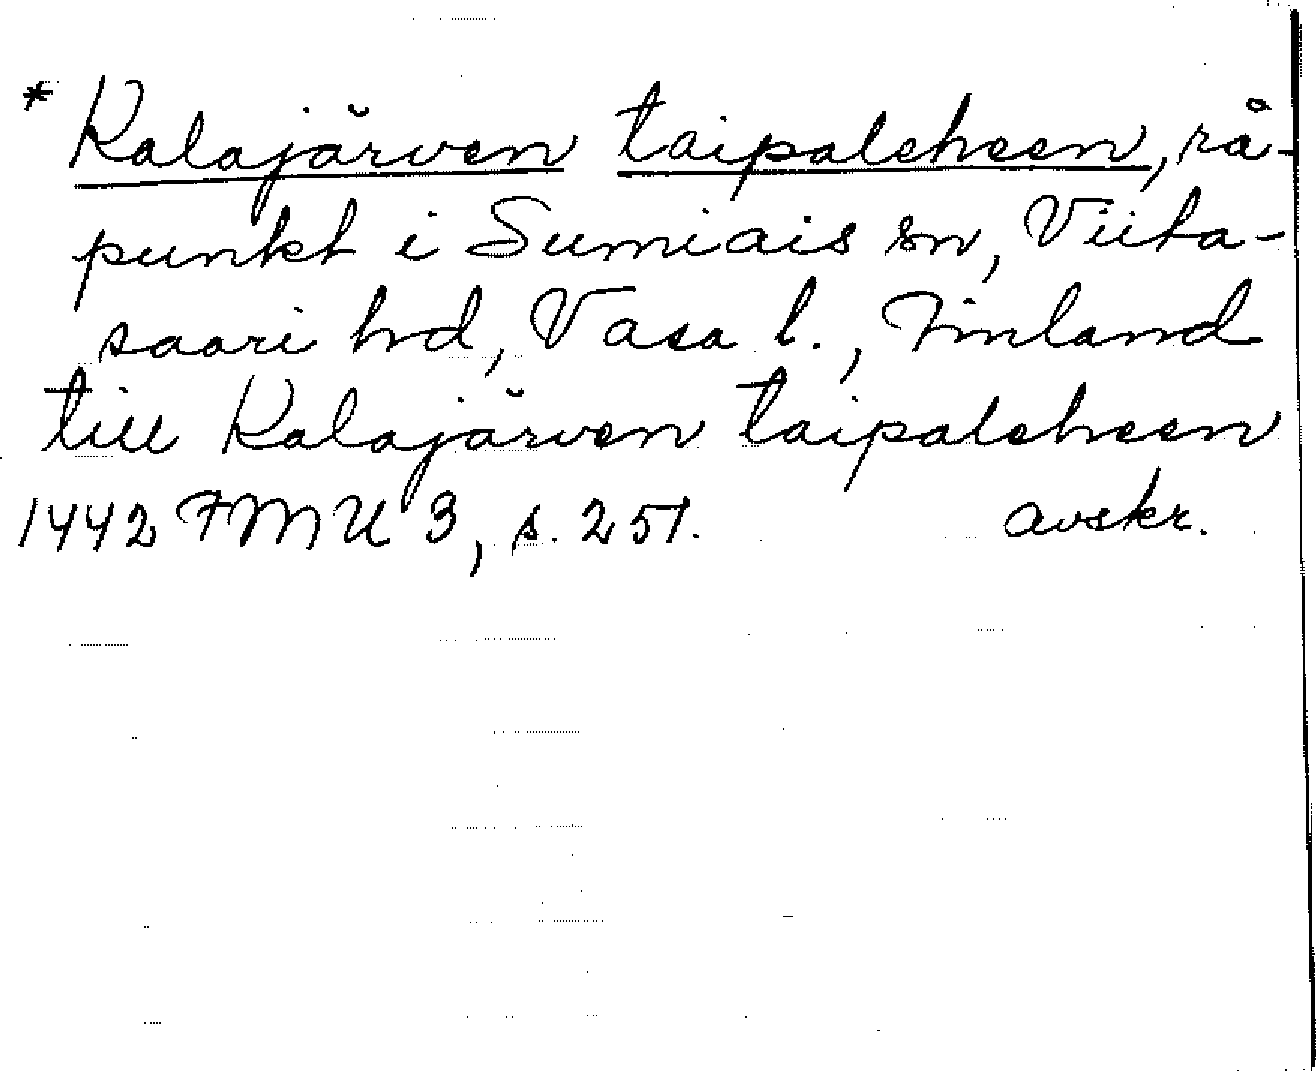 * Kalajärven taipaleheen, rå-
punkt i Sumiais sn, Viita-
saari hd, Vasa l., Finland
till Kalajärven taipaleheen
1442 FMU 3, s. 251. avskr.